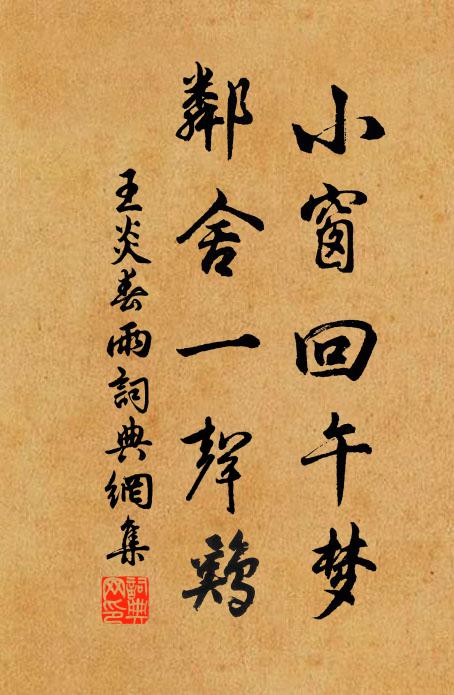 小窗回午梦
鄰舍一聲鷄
王炎春雨詞典網集
詞典网印